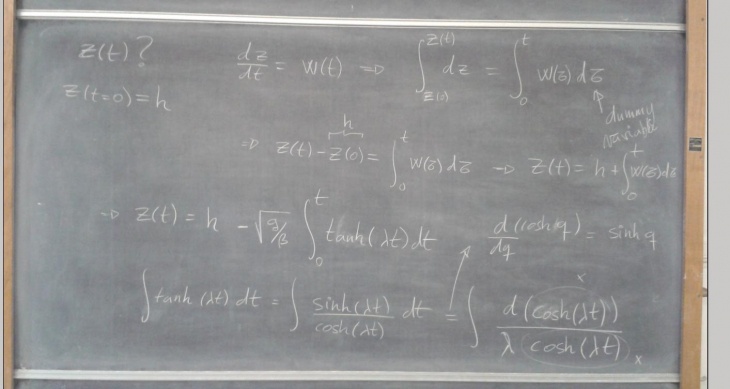 z(t)? dz/dt = w(t) ⇒ ∫_{z(0)}^{z(t)} dz = ∫_0^t w(τ) dτ
z(t=0) = h
dummy variable
h
⇒ z(t) - z(0) = ∫_0^t w(τ) dτ → z(t) = h + ∫_0^t w(τ) dτ
→ z(t) = h - √(g/β) ∫_0^t tanh(λt) dt d(cosh q)/dq = sinh q
∫ tanh(λt) dt = ∫ sinh(λt)/cosh(λt) dt = ∫ d(cosh(λt))/λ cosh(λt)
x
x